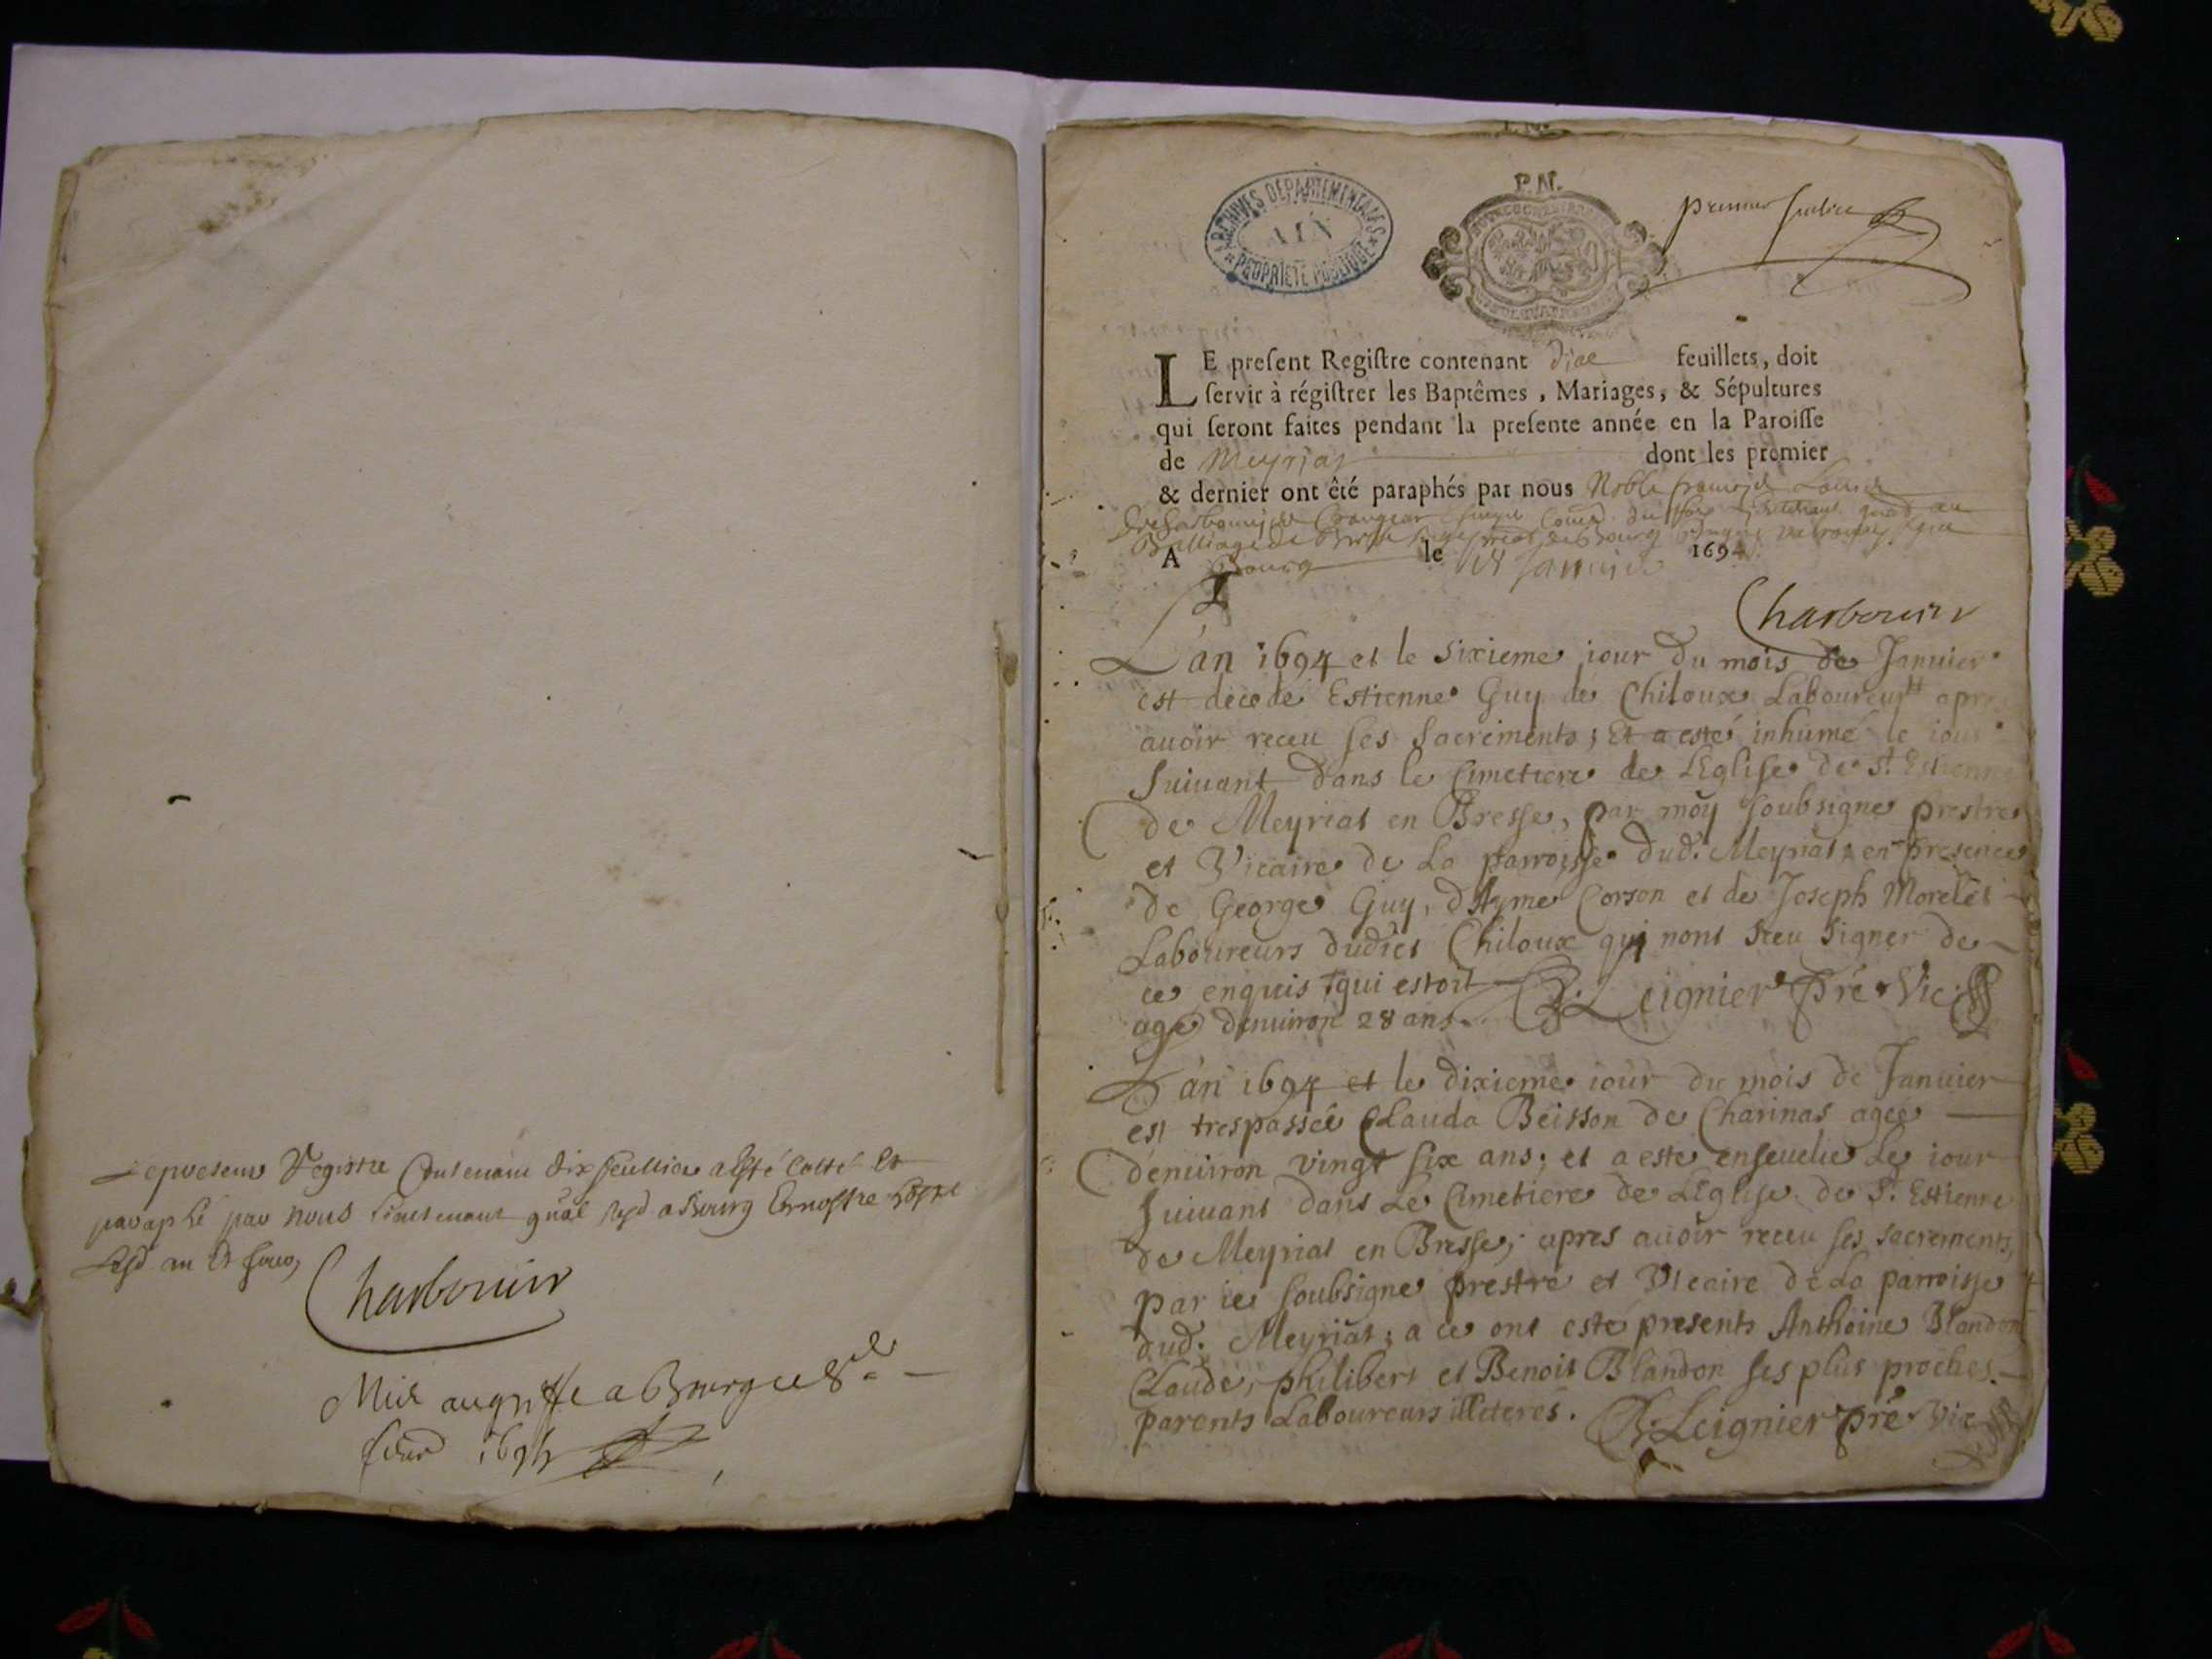 Le present Registre Contenant dix feuillets a esté cotté et
paraphé par nous Lieutenant gnal a Bourg En nostre hostel
Charbonier
Mis au greffe a Bourg ce 8e
1695
ARCHIVES DEPARTEMENTALES
AIN
PROPRIÉTÉ PUBLIQUE
P.M.
premier feuillet
LE preſent Regiſtre contenant dixe feuillets, doit
ſervir à régiſtrer les Baptêmes, Mariages, & Sépultures
qui ſeront faites pendant la preſente année en la Paroiſſe
de Meyriat dont les premier
& dernier ont êté paraphés par nous Noble françois Louis
Balliage de Bresse
A Bourg le Janvier 1694
Charbonier
L'an 1694 et le sixieme iour du mois de Januier
est décédé Estienne Guy de Chiloux Laboureur apres
auoir receu ses sacrements; Et a esté inhumé le iour
suiuant dans le Cimetiere de L'Eglise de St Estienne
de Meyriat en Bresse, par moy soubsigné prestre
et Vicaire de La parroisse dud. Meyriat; en presence
de George Guy, d'Ayme Corson et de Joseph Morelet
Laboureurs dudict Chiloux qui n'ont sceu signer de
ce enquis qui estoit
agé d'enuiron 28 ans. B. Leignier pre Vic.
L'an 1694 et le dixieme iour du mois de Januier
est trespassée Clauda Beisson de Charinas agée
d'enuiron vingt six ans; et a esté enseuelie Le iour
suiuant dans Le Cimetiere de L'Eglise de St. Estienne
de Meyriat en Bresse, apres auoir receu ses sacrements,
par ie soubsigné prestre et Vicaire de La parroisse
dud. Meyriat; a ce ont esté presents Anthoine Blandon
Claude, philibert et Benoit Blandon ses plus proches
parents Laboureurs illeteres. B. Leignier pre Vic